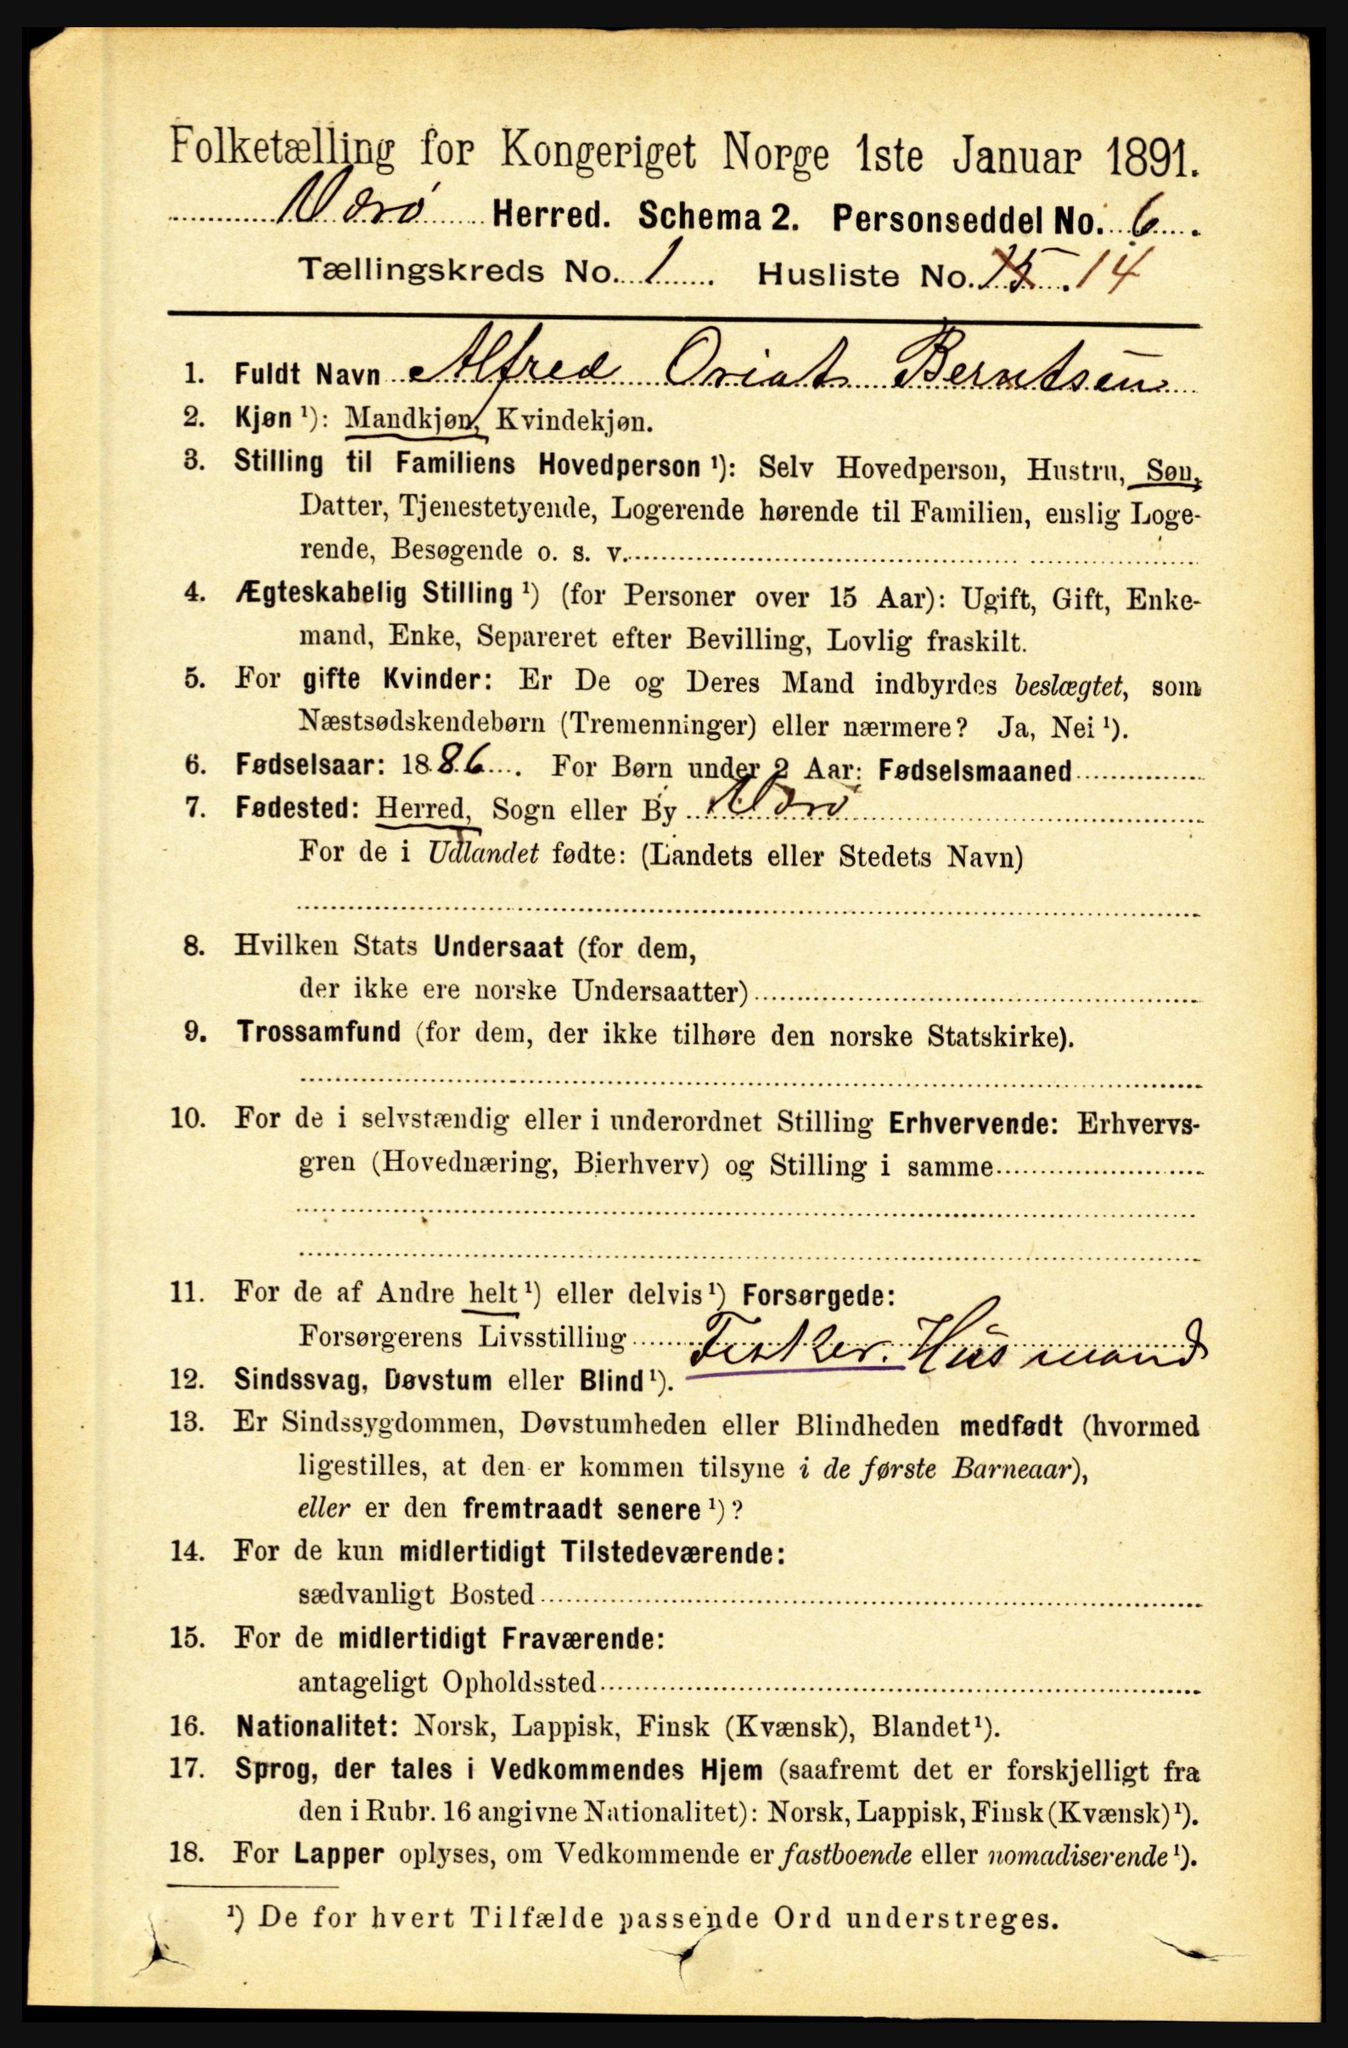 Folketælling for Kongeriget Norge 1ste Januar 1891.
Værø Herred. Schema 2. Personseddel No. 6.
Tællingskreds No. 1. Husliste No. 15. 14
1. Fuldt Navn Alfred Oriat Berntsen
2. Kjøn ¹): Mandkjøn, Kvindekjøn.
3. Stilling til Familiens Hovedperson ¹): Selv Hovedperson, Hustru, Søn,
Datter, Tjenestetyende, Logerende hørende til Familien, enslig Loge-
rende, Besøgende o. s. v.
4. Ægteskabelig Stilling ¹) (for Personer over 15 Aar): Ugift, Gift, Enke-
mand, Enke, Separeret efter Bevilling, Lovlig fraskilt.
5. For gifte Kvinder: Er De og Deres Mand indbyrdes beslægtet, som
Næstsødskendebørn (Tremenninger) eller nærmere? Ja, Nei ¹).
6. Fødselsaar: 1886. For Børn under 2 Aar: Fødselsmaaned
7. Fødested: Herred, Sogn eller By Værø
For de i Udlandet fødte: (Landets eller Stedets Navn)
8. Hvilken Stats Undersaat (for dem,
der ikke ere norske Undersaatter)
9. Trossamfund (for dem, der ikke tilhøre den norske Statskirke).
10. For de i selvstændig eller i underordnet Stilling Erhvervende: Erhvervs-
gren (Hovednæring, Bierhverv) og Stilling i samme
11. For de af Andre helt ¹) eller delvis ¹) Forsørgede:
Forsørgerens Livsstilling Fisker. Husmand
12. Sindssvag, Døvstum eller Blind ¹).
13. Er Sindssygdommen, Døvstumheden eller Blindheden medfødt (hvormed
ligestilles, at den er kommen tilsyne i de første Barneaar),
eller er den fremtraadt senere ¹)?
14. For de kun midlertidigt Tilstedeværende:
sædvanligt Bosted
15. For de midlertidigt Fraværende:
antageligt Opholdssted
16. Nationalitet: Norsk, Lappisk, Finsk (Kvænsk), Blandet ¹).
17. Sprog, der tales i Vedkommendes Hjem (saafremt det er forskjelligt fra
den i Rubr. 16 angivne Nationalitet): Norsk, Lappisk, Finsk (Kvænsk) ¹).
18. For Lapper oplyses, om Vedkommende er fastboende eller nomadiserende ¹).
¹) De for hvert Tilfælde passende Ord understreges.